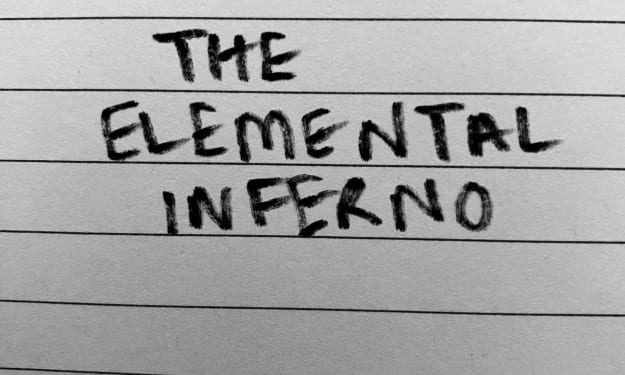 THE
ELEMENTAL
INFERNO